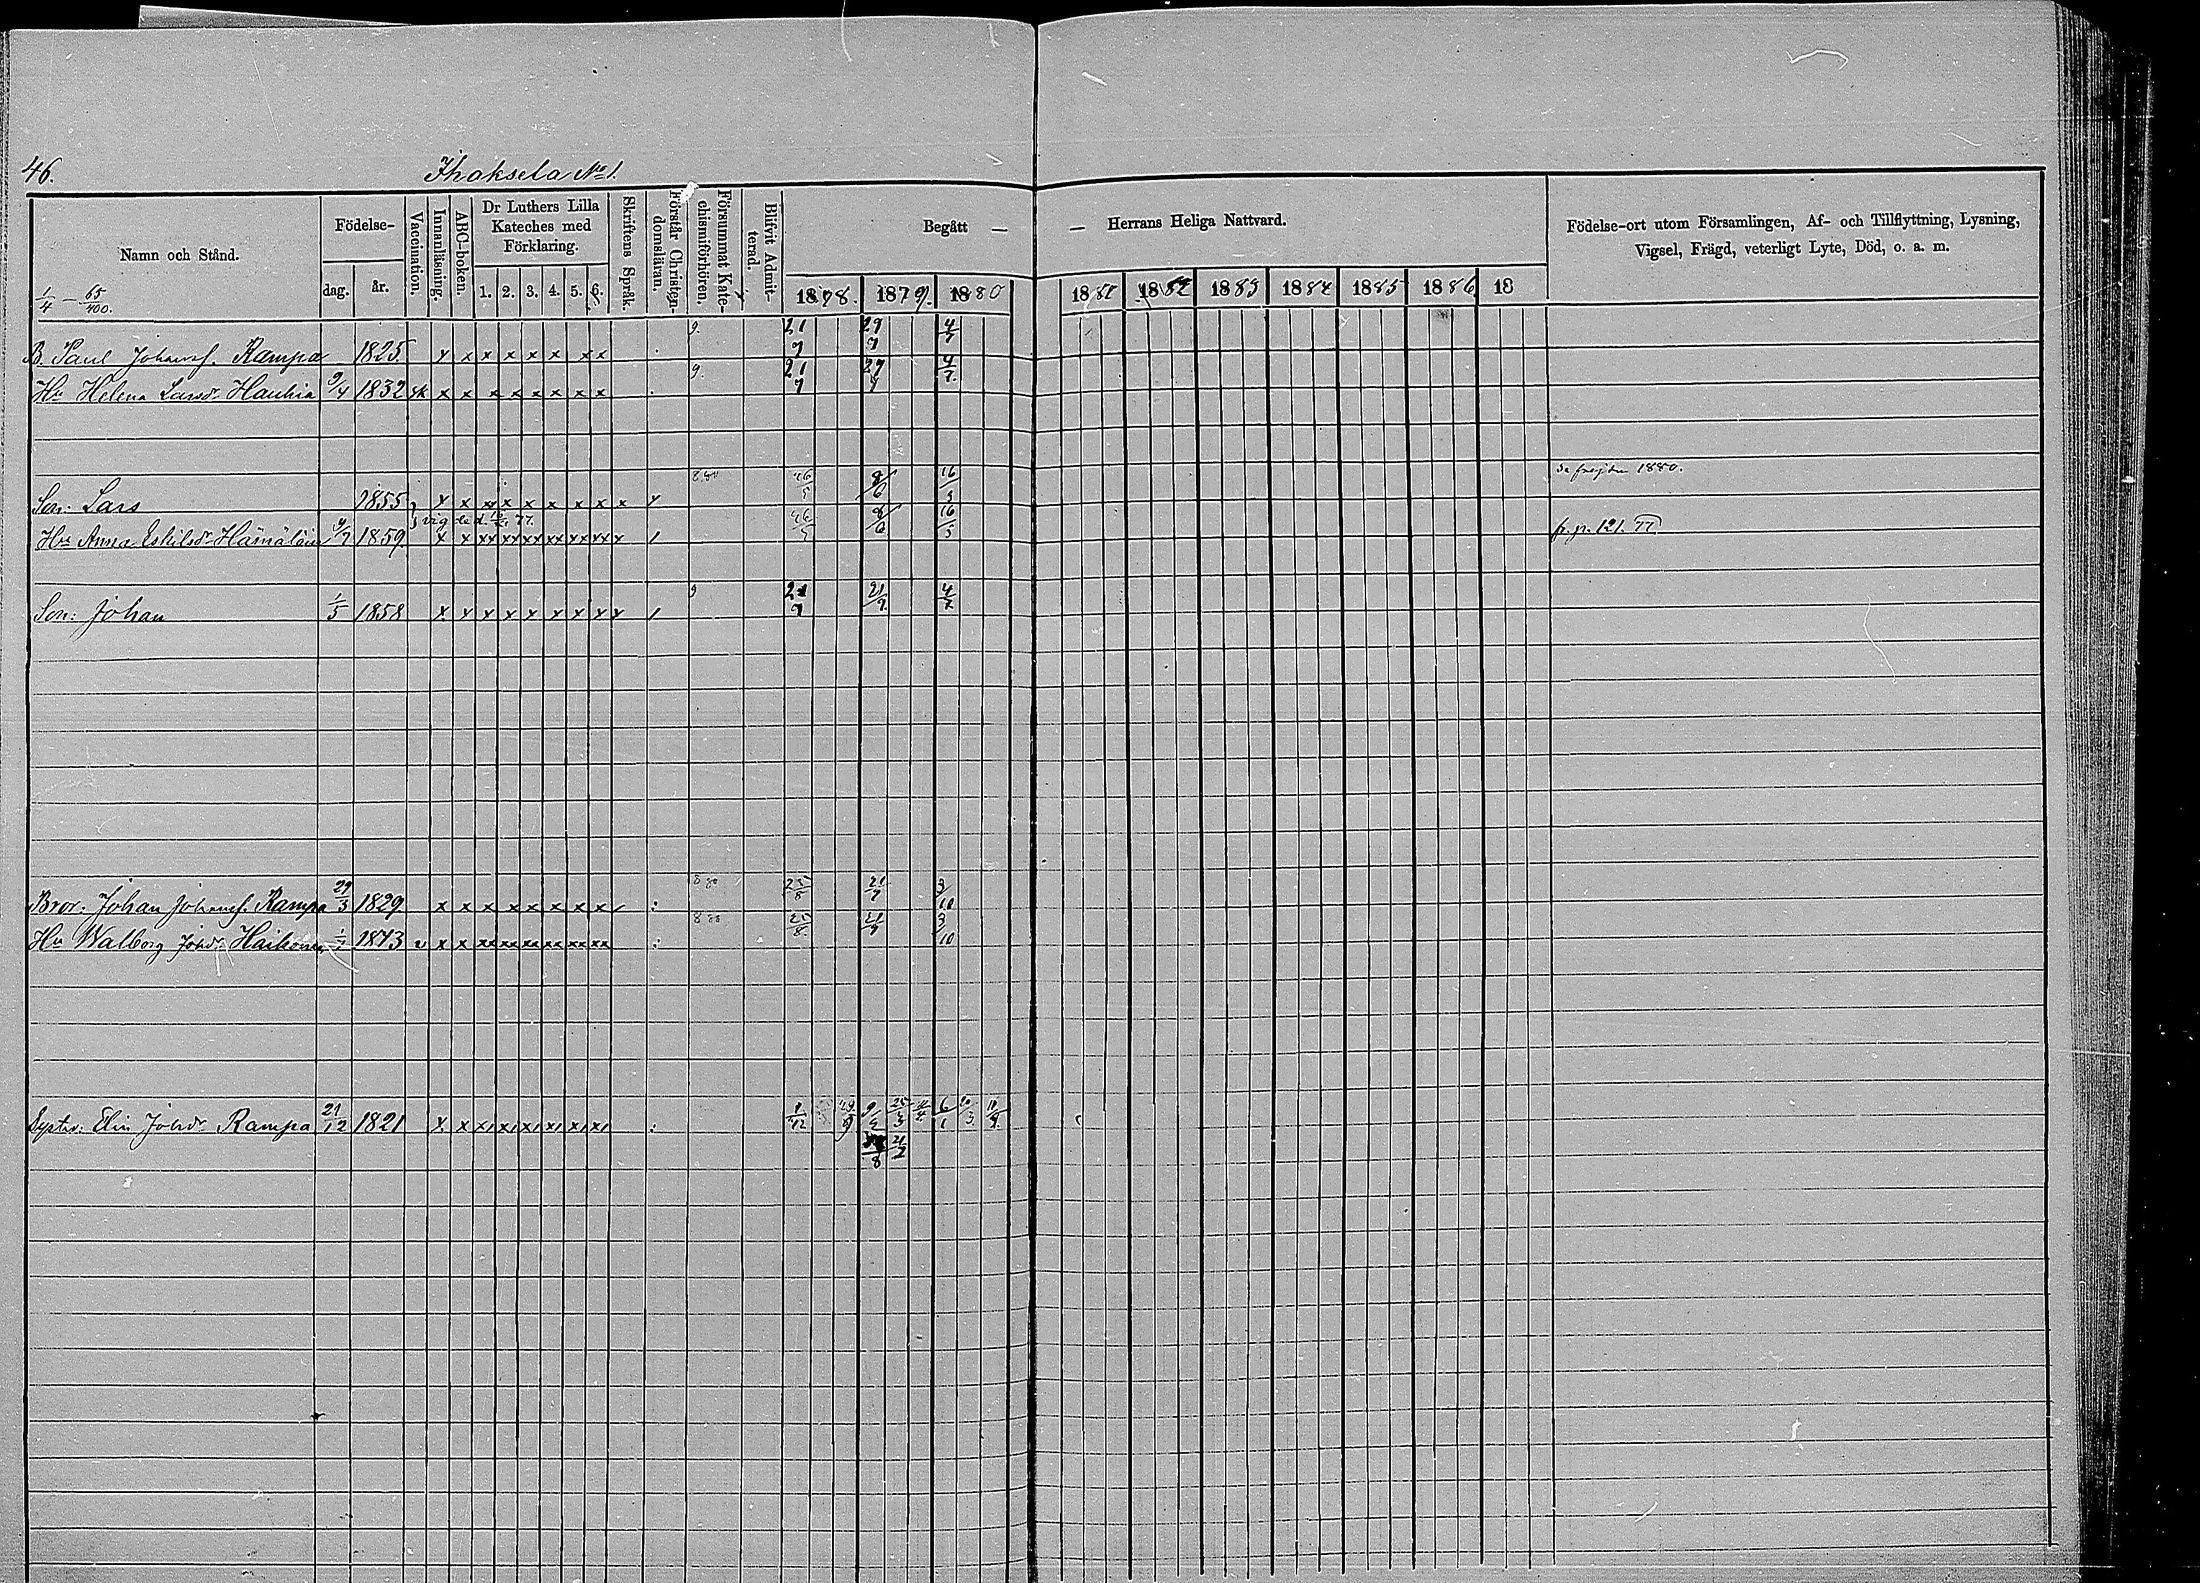 46.
Ihaksela No 1.
Namn och Stånd.
Födelse-
dag. år.
Vaccination.
Innanläsning.
ABC-boken.
Dr Luthers Lilla
Kateches med
Förklaring.
1. 2. 3. 4. 5. 6.
Skriftens Språk.
Förstår Christen-
domsläran.
Försummat Kate-
chismiförhören.
Blifvit Admit-
terad.
Begått — — Herrans Heliga Nattvard.
1878. 1879. 1880 1881 1882 1883 1884 1885 1886 18
Födelse-ort utom Församlingen, Af- och Tillflyttning, Lysning,
Vigsel, Frägd, veterligt Lyte, Död, o. a. m.
1/4 — 65/400.
B. Paul Johansf. Rampa 1825 x x x x x x x x 9. 21/7 29/7 4/7
Hu Helena Larsdr Hauhia 9/4 1832 x x x x x x x x 9. 21/7 27/7 4/7
Son: Lars 1855 x x x x x x x x x 8.80 26/5 8/6 16/5 1880.
vig
Hu Anna Eskilsdr 4/7 1859 x x xx xx xx xx xx xx x 26/5 8/6 16/5 fr. p. 121. 77
Son: Johan 1/5 1858 x x x x x x x x x 9 21/7 21/7 4/7
Bror: Johan Johansf. Rampa 29/3 1829 x x x x x x x x 8 80 25/8 21/7 3/10
Hu Walborg Johdr x x xx xx xx xx xx xx 8 80 25/8 21/7 3/10
Syster: Elin Johdr Rampa 21/12 1821 x x x1 x1 x1 x1 x1 x1